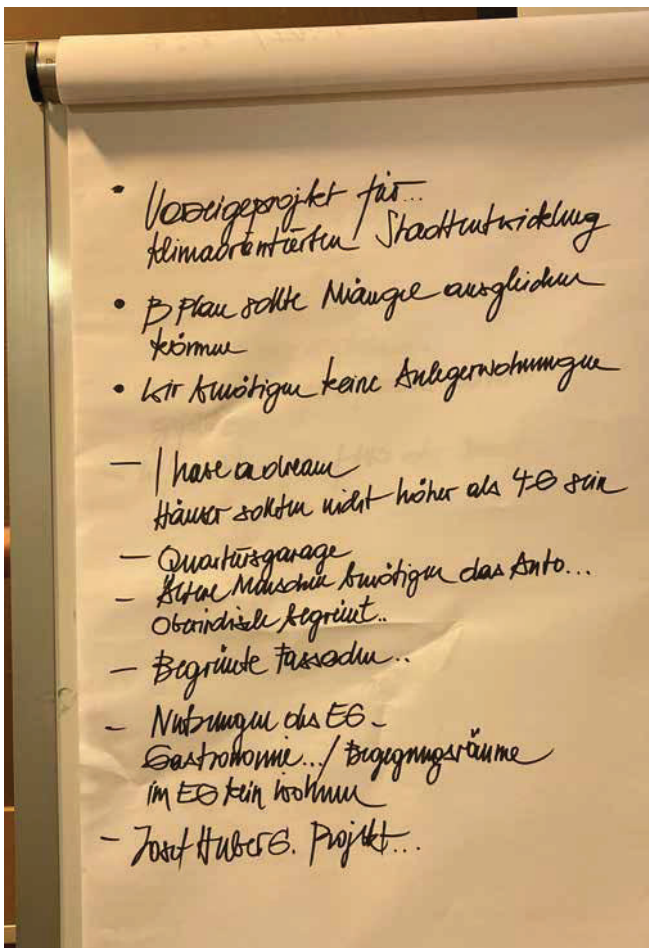 • Vorzeigeprojekt für...
klimaorientierten Stadtentwicklung
• B Plan sollte Mängel ausgleichen
können
• Wir benötigen keine Anlegerwohnungen
— I have a dream
Häuser sollten nicht höher als 4G sein
— Quartiersgarage
— Ältere Menschen benötigen das Auto...
Oberirdisch begrünt..
— Begrünte Fassaden..
— Nutzungen des EG –
Gastronomie.../ Begegnungsräume
im EG kein wohnen
— Josef Huber G. Projekt...